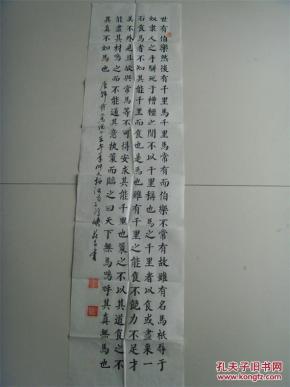 世有伯樂然後有千里馬千里馬常有而伯樂不常有故雖有名馬祇辱于
奴隸人之手駢死于槽櫪之間不以千里稱也馬之千里者一食或盡粟一
石食馬者不知其能千里而食也是馬也雖有千里之能食不飽力不足才
美不外見且欲與常馬等不可得安求其能千里也策之不以其道食之不
能盡其材鳴之而不能通其意執策而臨之曰天下無馬嗚呼其真無馬也
其真不知馬也
孔夫子旧书网